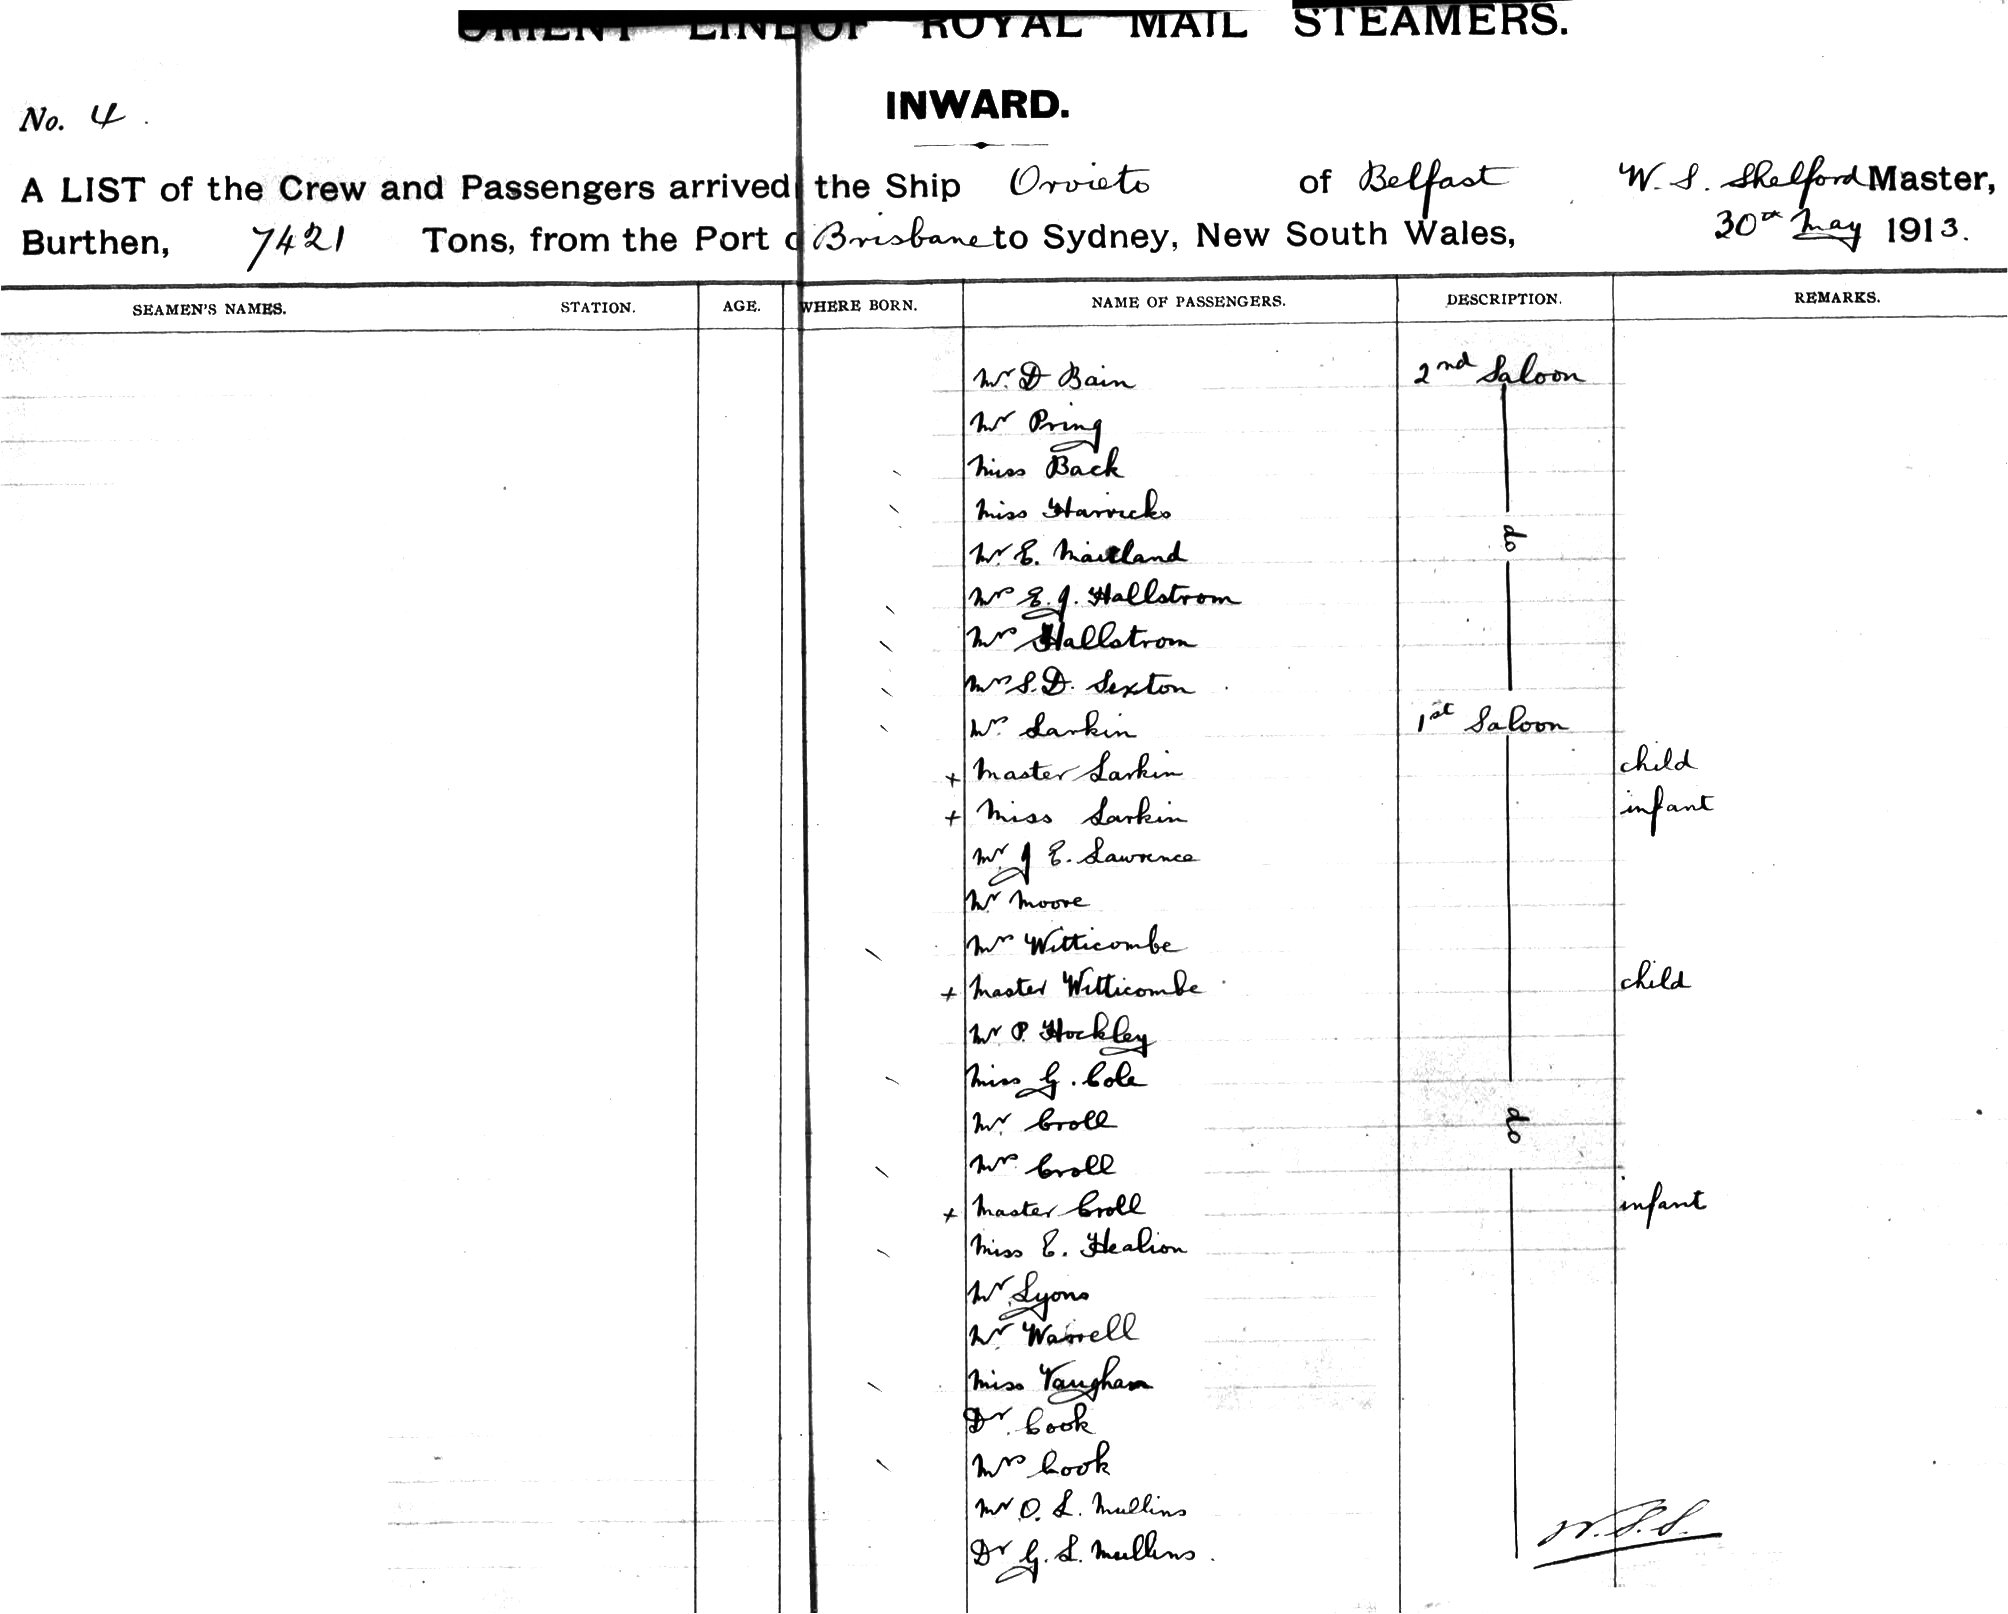 ORIENT LINE OF ROYAL MAIL STEAMERS.
INWARD.
No. 4.
A LIST of the Crew and Passengers arrived the Ship Orvieto of Belfast W. S. Shelford Master,
Burthen, 7421 Tons, from the Port o Brisbane to Sydney, New South Wales, 30th May 1913.
SEAMEN'S NAMES. STATION. AGE. WHERE BORN. NAME OF PASSENGERS. DESCRIPTION. REMARKS.
Mr. D Bain 2nd Saloon
Mr Pring
Miss Back
Miss Harricks
Mr. E. Maitland do
Mrs E. J. Hallstrom
Mrs Hallstrom
Mrs S. D. Sexton
Mrs. Larkin 1st Saloon
+ Master Larkin child
+ Miss Larkin infant
Mr. J E. Lawrence
Mr Moore
Mrs Witticombe
+ Master Witticombe child
Mr. P. Hockley
Miss G. Cole
Mr. Croll do
Mrs. Croll
+ Master Croll infant
Miss E. Healion
Mr. Lyons
Mr Warrell
Miss Vaughan
Dr. Cook
Mrs Cook
Mr O. L. Mullins
Dr G. L. Mullins.
W.S.S.